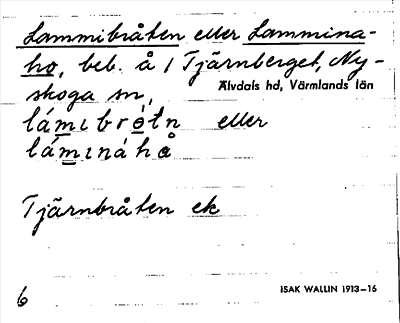 Lammibråten eller Lammina-
ho, beb. å 1 Tjärnberget, Ny-
skoga sn, Älvdals hd, Värmlands län
lám̲ıbrò̲tn eller
lám̲ınáhå
Tjärnbråten ek
6
ISAK WALLIN 1913–16